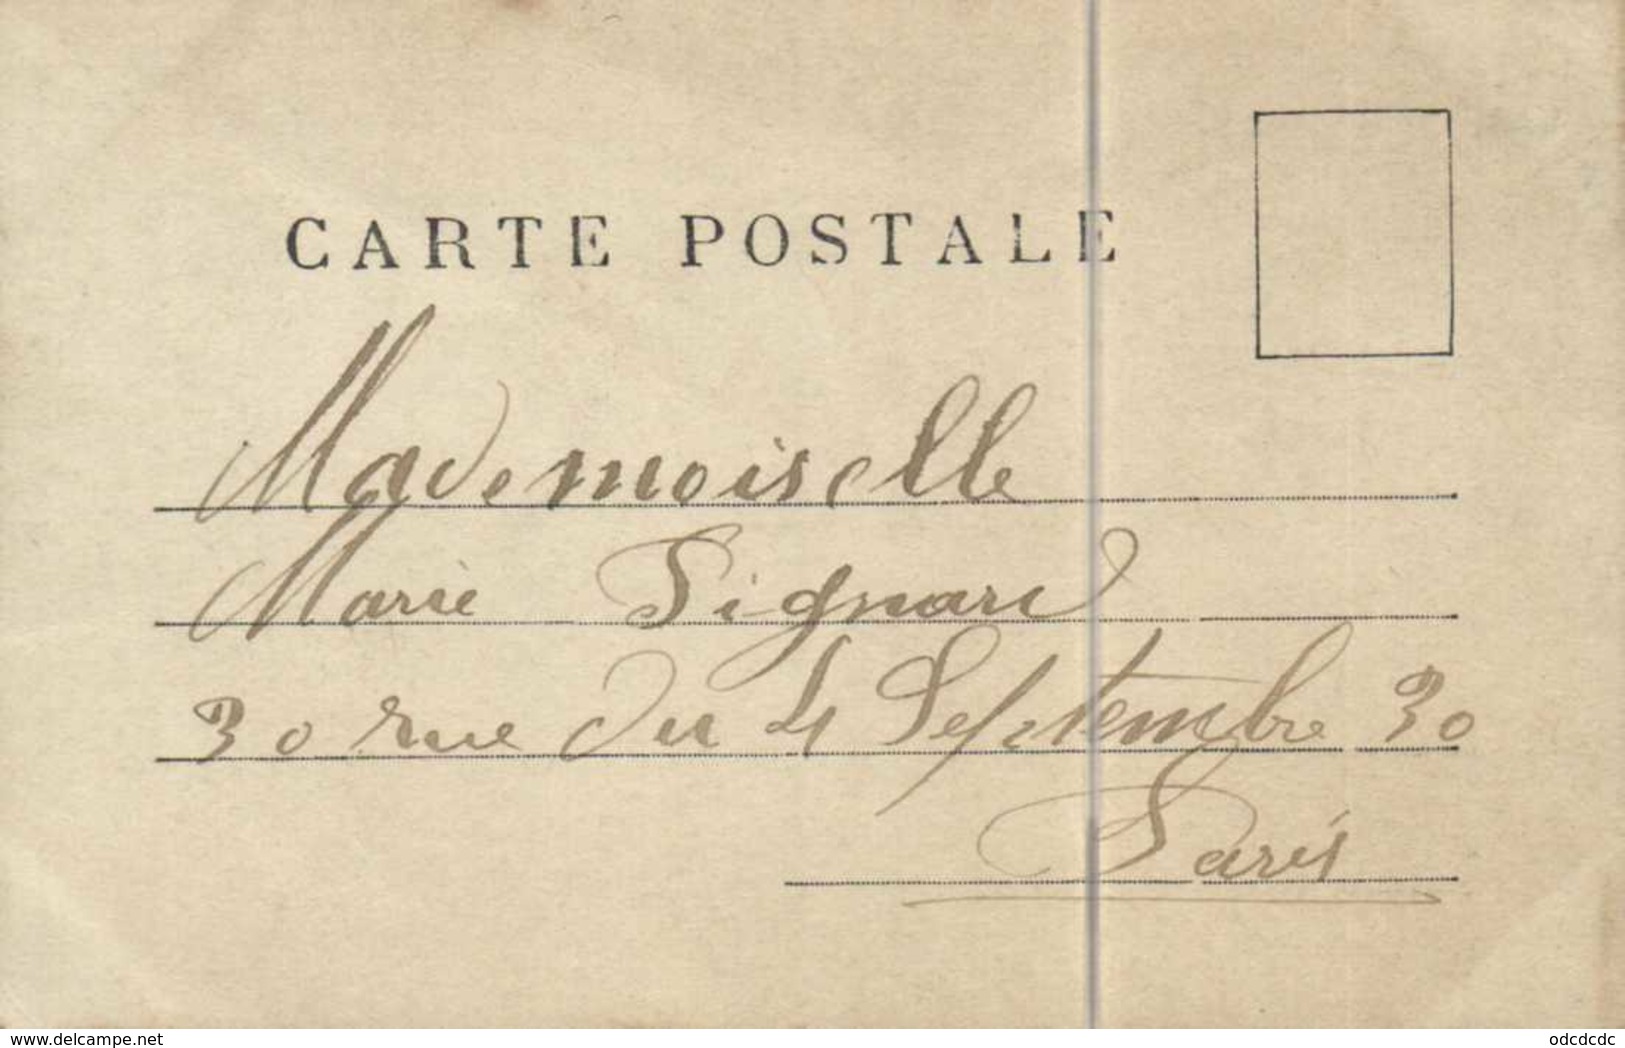 CARTE POSTALE
Mademoiselle
Marie Signard
30 rue du 4 Septembre 30
Paris
www.delcampe.net
odcdcdc